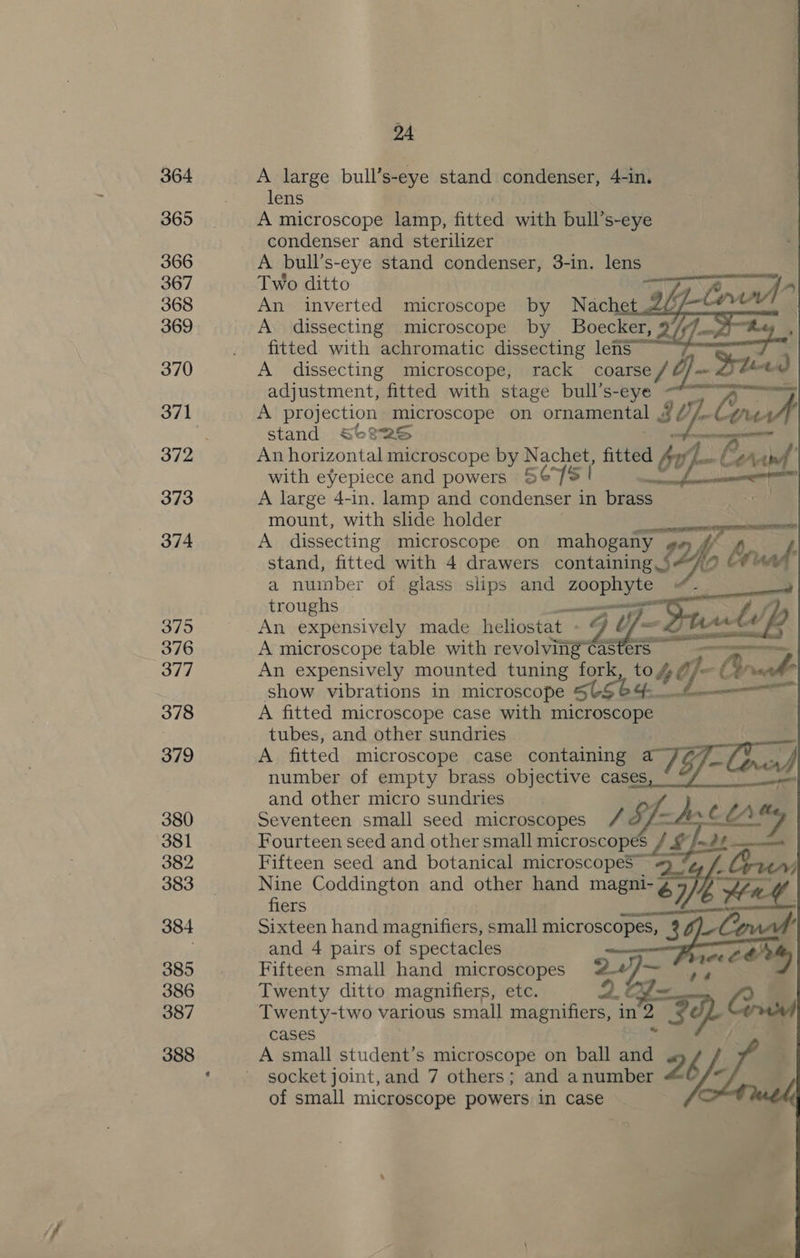 24
364 A large bull's-eye stand condenser, 4-in.
lens
365 A microscope lamp, fitted with bull's-eye
condenser and sterilizer
366 A bull's-eye stand condenser, 3-in. lens
367 Two ditto
368 An inverted microscope by Nachet 26/-
369 A dissecting microscope by Boecker,
fitted with achromatic dissecting lens
370 A dissecting microscope, rack coarse
adjustment, fitted with stage bull's-eye
371 A projection microscope on ornamental
stand 56825
372 An horizontal microscope by Nachet, fitted
with eyepiece and powers 56751
373 A large 4-in. lamp and condenser in brass
mount, with slide holder
374 A dissecting microscope on mahogany
stand, fitted with 4 drawers containing
a number of glass slips and zoophyte
troughs
375 An expensively made heliostat
376 A microscope table with revolving casters
377 An expensively mounted tuning fork, to
show vibrations in microscope 56564
378 A fitted microscope case with microscope
tubes, and other sundries
379 A fitted microscope case containing a
number of empty brass objective cases,
and other micro sundries
380 Seventeen small seed microscopes
381 Fourteen seed and other small microscopes
382 Fifteen seed and botanical microscopes
383 Nine Coddington and other hand magni-
fiers
384 Sixteen hand magnifiers, small microscopes,
and 4 pairs of spectacles
385 Fifteen small hand microscopes
386 Twenty ditto magnifiers, etc.
387 Twenty-two various small magnifiers, in 2
cases
388 A small student's microscope on ball and
socket joint, and 7 others; and a number 26/-
of small microscope powers in case